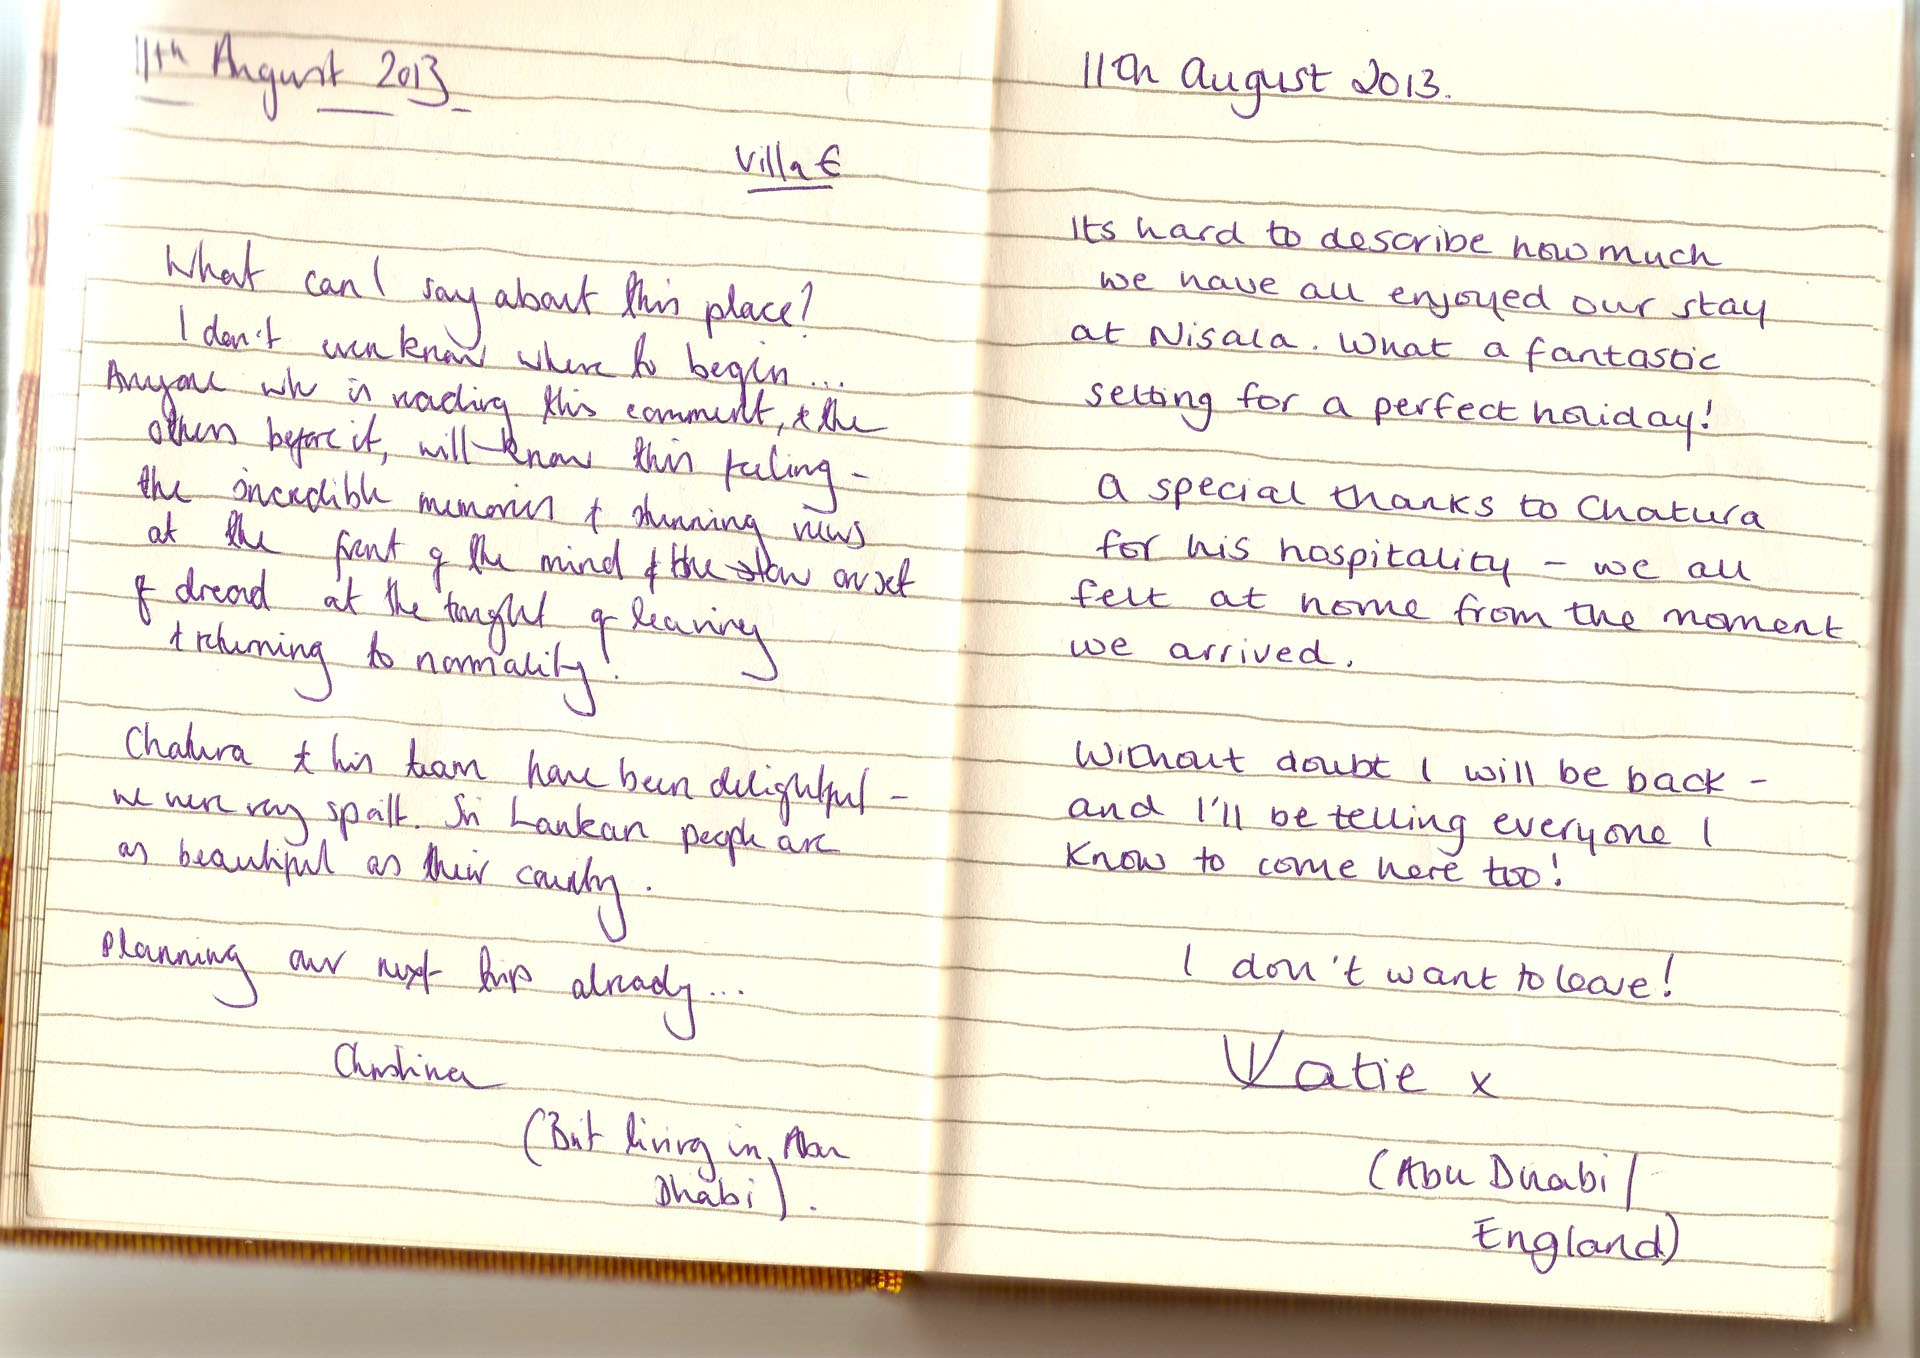 11th August 2013
Villa E
What can I say about this place?
I don't even know where to begin...
Anyone who is reading this comment, & the
others before it, will know this feeling -
the incredible memories & stunning views
at the front of the mind & the slow onset
of dread at the tought of leaving
& returning to normality!
Chatura & his team have been delightful -
we were very spoilt. Sri Lankan people are
as beautiful as their country.
Planning our next trip already...
Christina
(But living in Abu
Dhabi).
11th August 2013.
Its hard to describe how much
we have all enjoyed our stay
at Nisala. What a fantastic
setting for a perfect holiday!
A special thanks to Chatura
for his hospitality - we all
felt at home from the moment
we arrived.
Without doubt I will be back -
and I'll be telling everyone I
know to come here too!
I don't want to leave!
Katie x
(Abu Dhabi /
England)